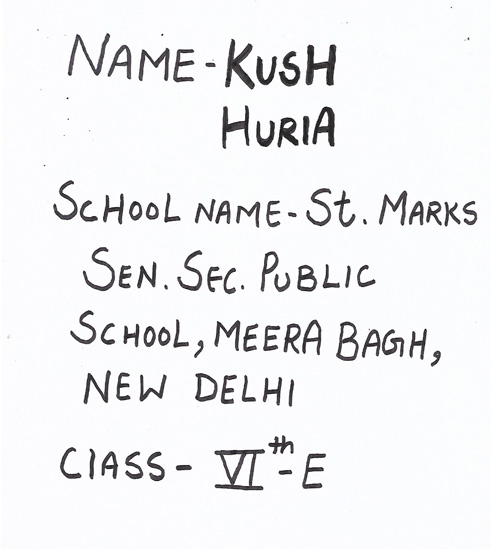 NAME - KUSH
HURIA
SCHOOL NAME - St. MARKS
SEN. SEC. PUBLIC
SCHOOL, MEERA BAGH,
NEW DELHI
ClASS - VIth - E